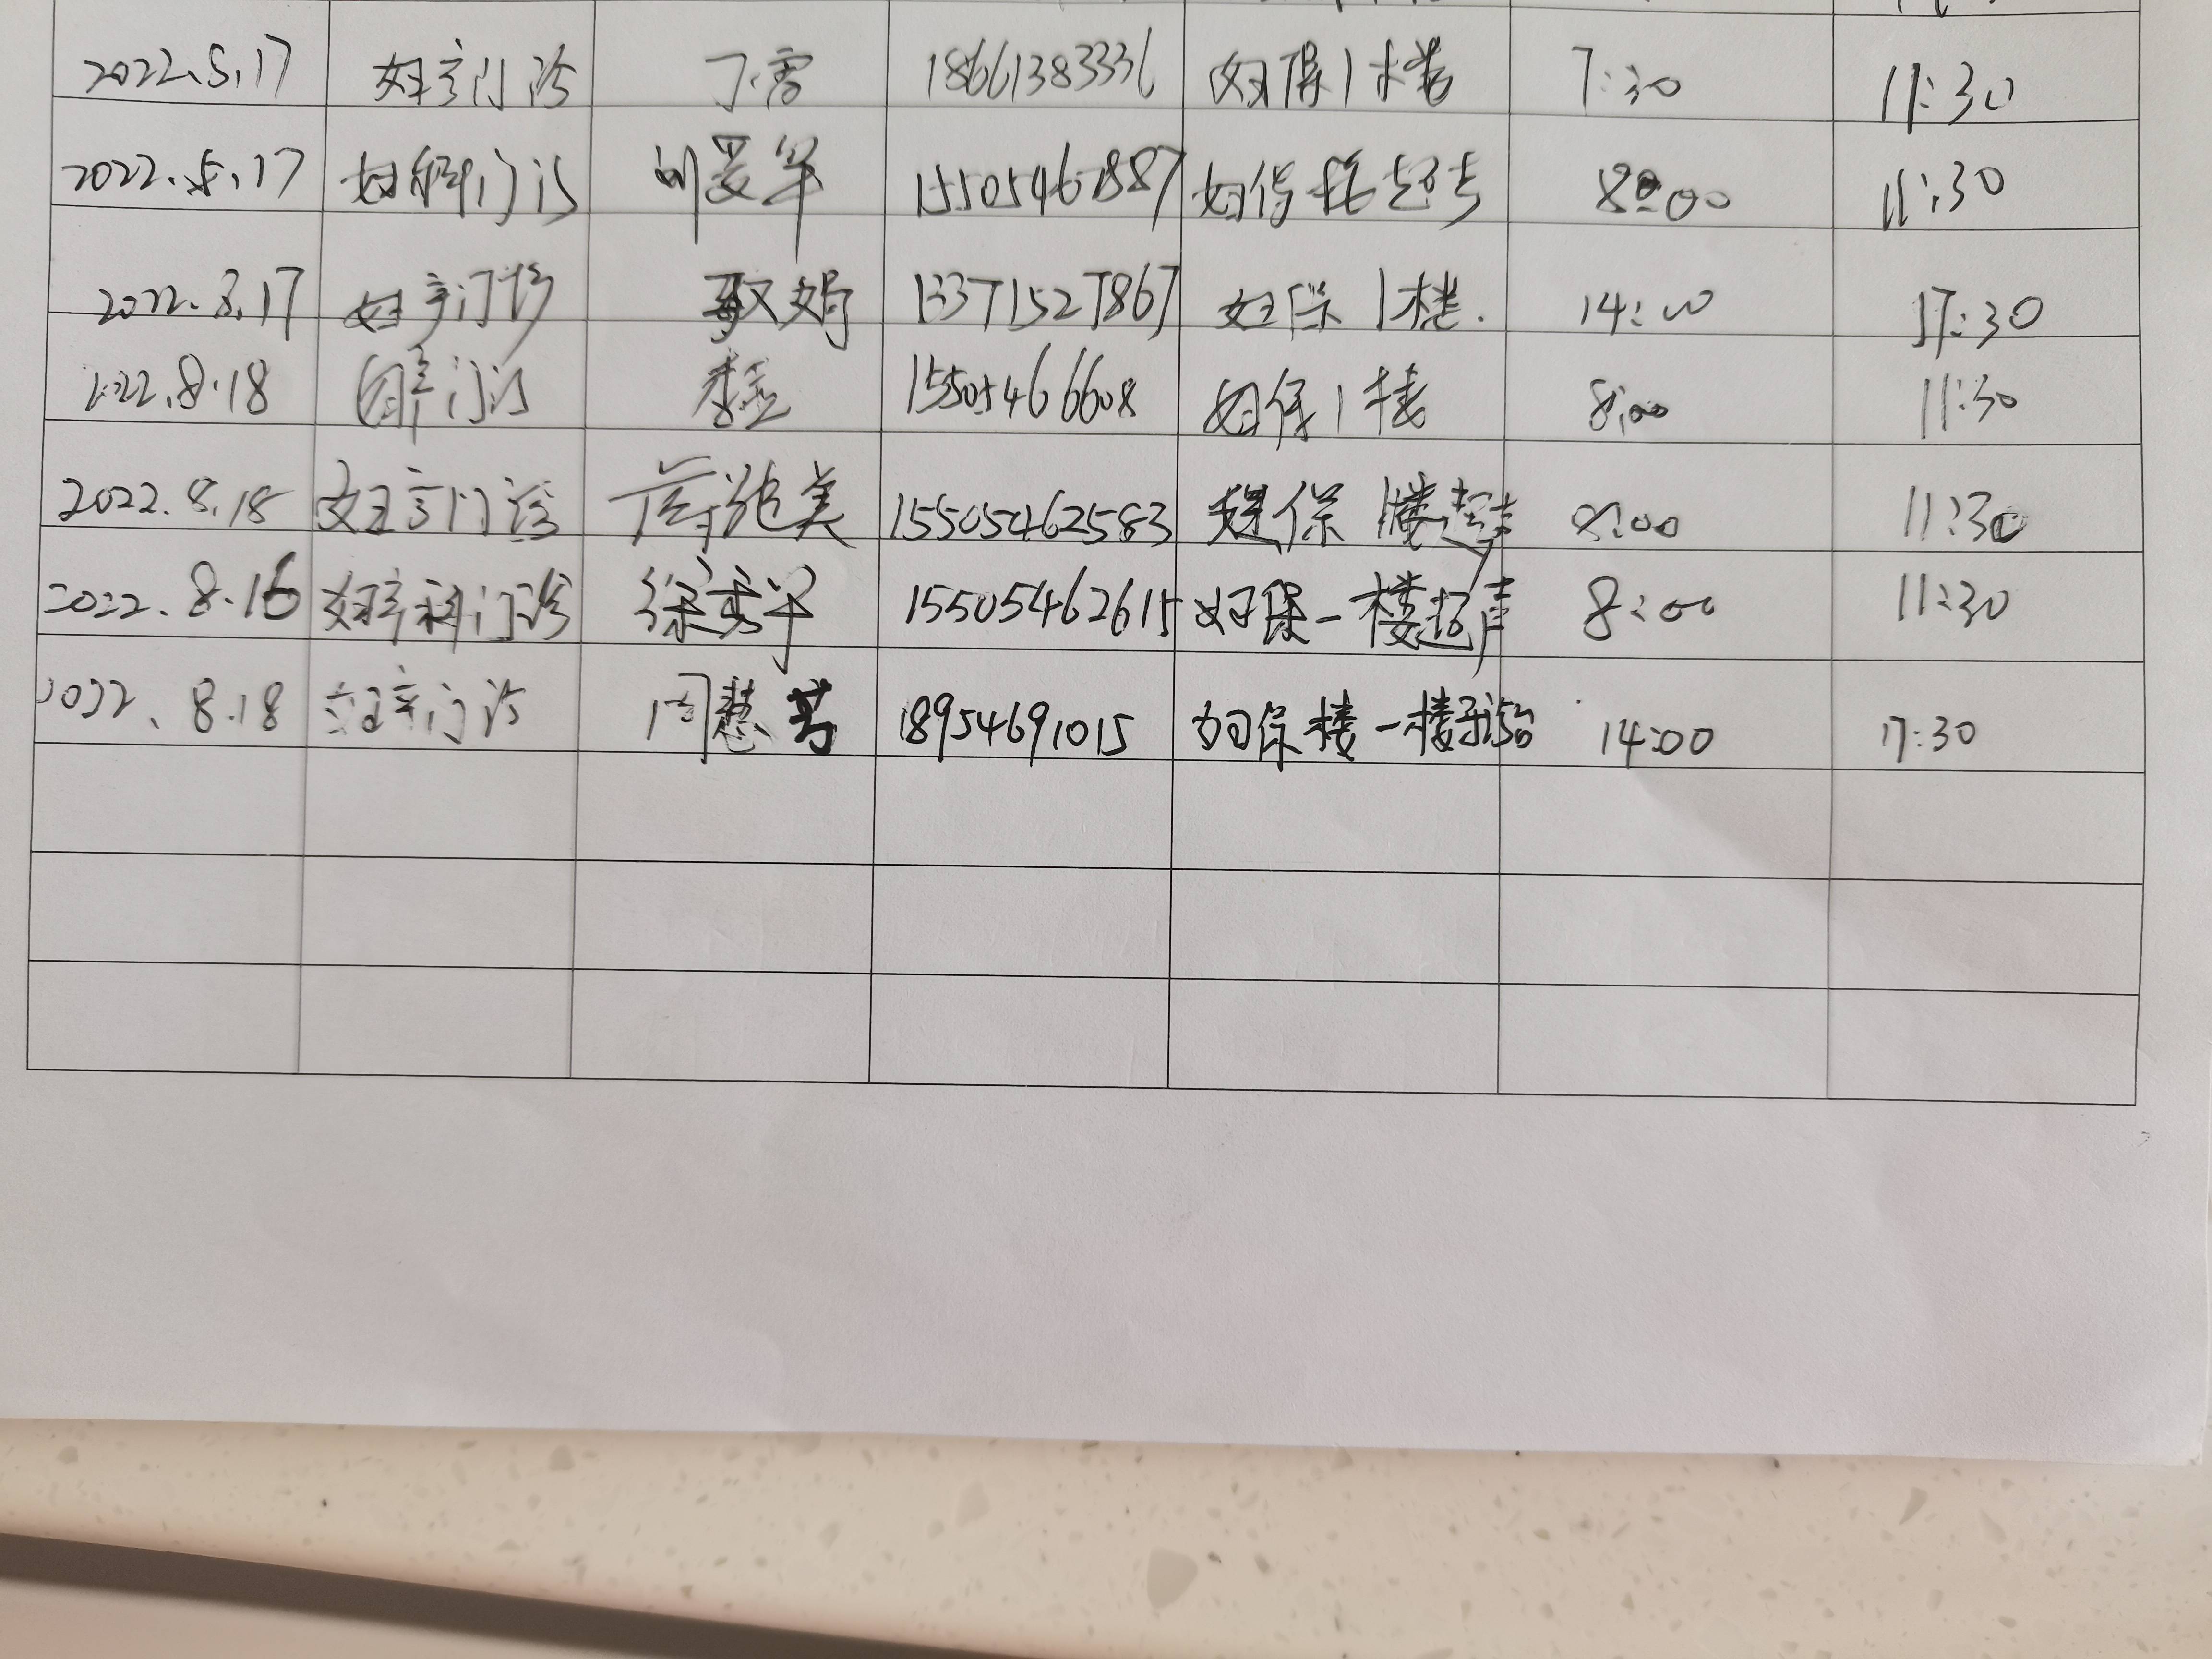 2022.8.17 妇产门诊 丁雪 18661383336 妇保1楼 7:30 11:30
2022.8.17 妇产科门诊 刘爱军 15505461887 妇保 超声 8:00 11:30
2022.8.17 妇产门诊 娟 13371527867 妇保1楼. 14:00 17:30
2022.8.18 门诊 李 15505466608 妇保1楼 8:00 11:30
2022.8.18 妇产门诊 美 15505462583 妇保1楼超声 8:00 11:30
2022.8.16 妇产科门诊 徐秀 15505462615 妇保一楼超声 8:00 11:30
2022.8.18 妇产门诊 周慧芳 18954691015 妇保楼一楼 14:00 17:30